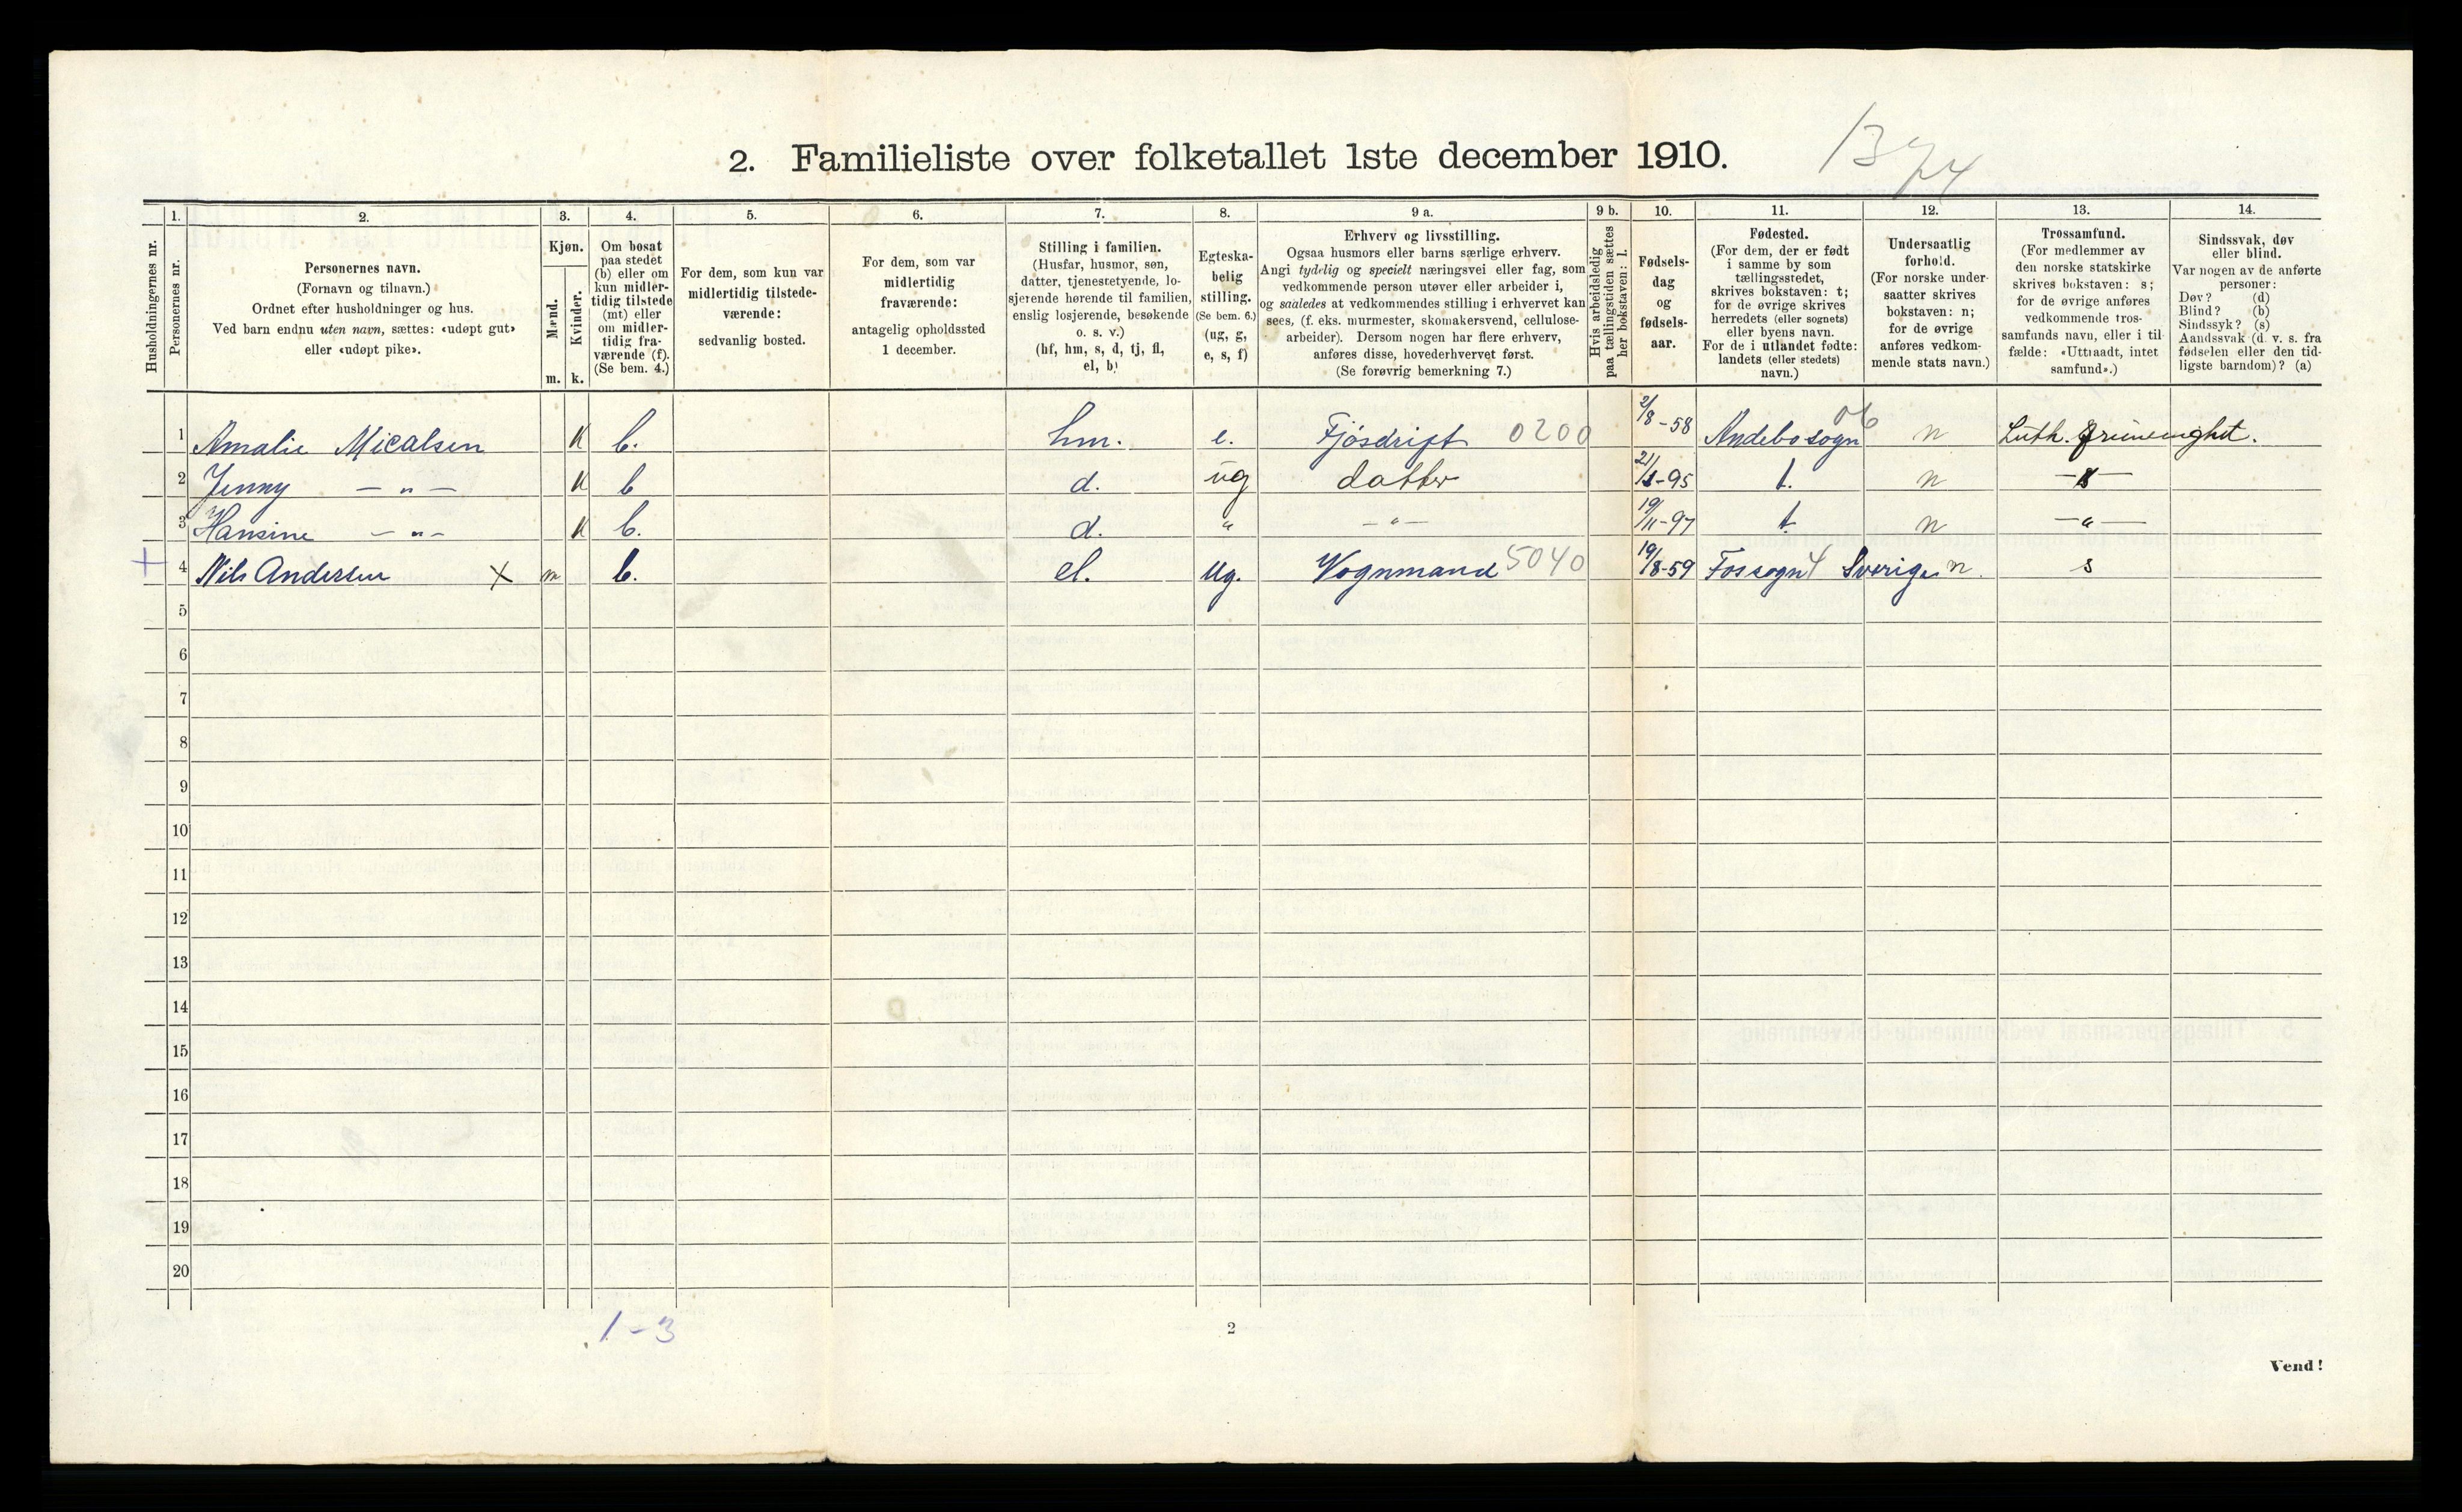 2. Familieliste over folketallet 1ste december 1910.
Husholdningernes nr.
1. Personernes nr.
2. Personernes navn.
(Fornavn og tilnavn.)
Ordnet efter husholdninger og hus.
Ved barn endnu uten navn, sættes: «udøpt gut»
eller «udøpt pike».
3. Kjøn.
Mænd. m.
Kvinder. k.
4. Om bosat
paa stedet
(b) eller om
kun midler-
tidig tilstede
(mt) eller
om midler-
tidig fra-
værende (f).
(Se bem. 4.)
5. For dem, som kun var
midlertidig tilstede-
værende:
sedvanlig bosted.
6. For dem, som var
midlertidig
fraværende:
antagelig opholdssted
1 december.
7. Stilling i familien.
(Husfar, husmor, søn,
datter, tjenestetyende, lo-
sjerende hørende til familien,
enslig losjerende, besøkende
o. s. v.)
(hf, hm, s, d, tj, fl,
el, b)
8. Egteska-
belig
stilling.
(Se bem. 6.)
(ug, g,
e, s, f)
9 a. Erhverv og livsstilling.
Ogsaa husmors eller barns særlige erhverv.
Angi tydelig og specielt næringsvei eller fag, som
vedkommende person utøver eller arbeider i,
og saaledes at vedkommendes stilling i erhvervet kan
sees, (f. eks. murmester, skomakersvend, cellulose-
arbeider). Dersom nogen har flere erhverv,
anføres disse, hovederhvervet først.
(Se forøvrig bemerkning 7.)
9 b. Hvis arbeidsledig
paa tællingstiden sættes
her bokstaven: l.
10. Fødsels-
dag
og
fødsels-
aar.
11. Fødested.
(For dem, der er født
i samme by som
tællingsstedet,
skrives bokstaven: t;
for de øvrige skrives
herredets (eller sognets)
eller byens navn.
For de i utlandet fødte:
landets (eller stedets)
navn.)
12. Undersaatlig
forhold.
(For norske under-
saatter skrives
bokstaven: n;
for de øvrige
anføres vedkom-
mende stats navn.)
13. Trossamfund.
(For medlemmer av
den norske statskirke
skrives bokstaven: s;
for de øvrige anføres
vedkommende tros-
samfunds navn, eller i til-
fælde: «Uttraadt, intet
samfund».)
14. Sindssvak, døv
eller blind.
Var nogen av de anførte
personer:
Døv? (d)
Blind? (b)
Sindssyk? (s)
Aandssvak (d. v. s. fra
fødselen eller den tid-
ligste barndom)? (a)
1 Amalie Micalsen K b. hm. e. Fjösdrift 0200 2/8-58 Andebo sogn 06 n Luth.
2 Jenny — „ — K b d. ug datter 21/ -95 t. n
3 Hansine — „ — K b. d. „ — „ — 19/11-97 t n — „ —
+ 4 Nils Andersen X m b. el. ug. Vognmand 5040 19/8-59 Fossogn Sverige n. s
5
6
7
8
9
10
11
12
13
14
15
16
17
18
19
20
1-3
2
Vend!